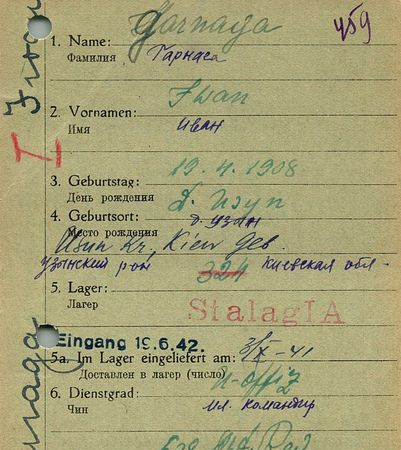 459
1. Name: Garnaga
Фамилия Гарнага
2. Vornamen: Iwan
Имя Иван
19.4.1908
3. Geburtstag:
День рождения D. Usyn
4. Geburtsort: д. Узин
Место рождения
Usin Kr, Kiew Geb.
Узынский рон Киевская обл-
324
5. Lager:
Лагер Stalag IA
Eingang 19.6.42.
5a. Im Lager eingeliefert am: 3/IX-41
Доставлен в лагер (число) U-offiz
6. Dienstgrad:
Чин мл. командир